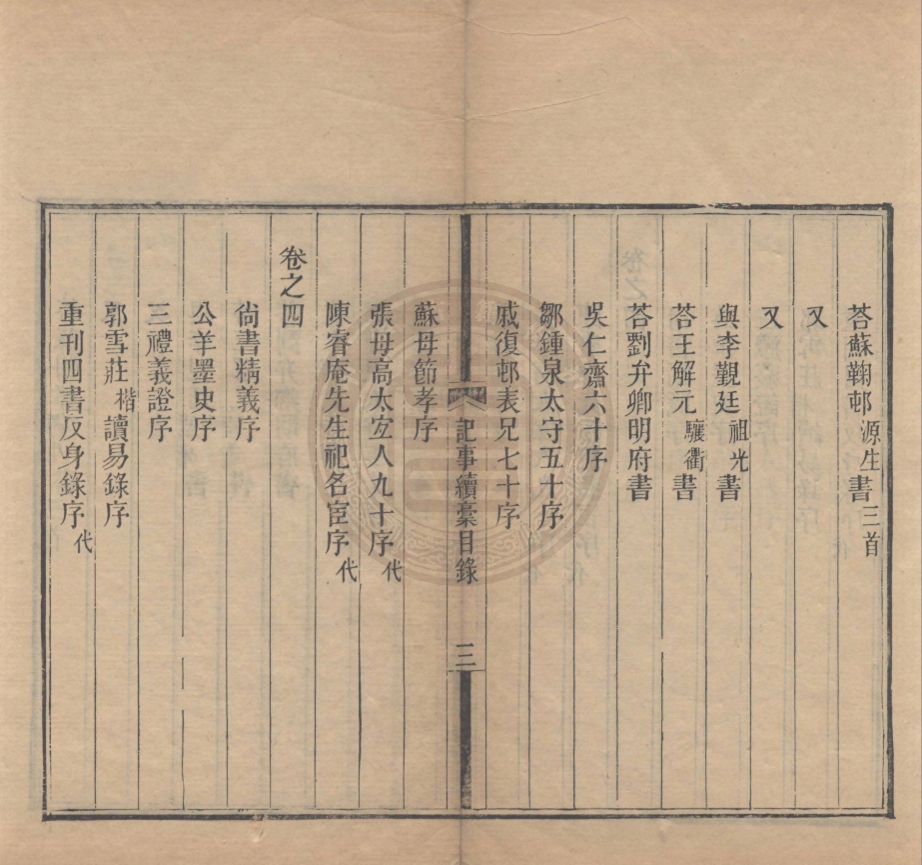 荅蘇鞠邨源生書三首
又
又
與李覲廷祖光書
荅王解元驤衢書
荅劉弁卿明府書
吳仁齋六十序
鄒鍾泉太守五十序
戚復邨表兄七十序
記事續稾目錄
三
蘇母節孝序
張母高太宜人九十序代
陳睿庵先生祀名宦序代
卷之四
尙書精義序
公羊墨史序
三禮義證序
郭雪莊楷讀易錄序
重刊四書反身錄序代